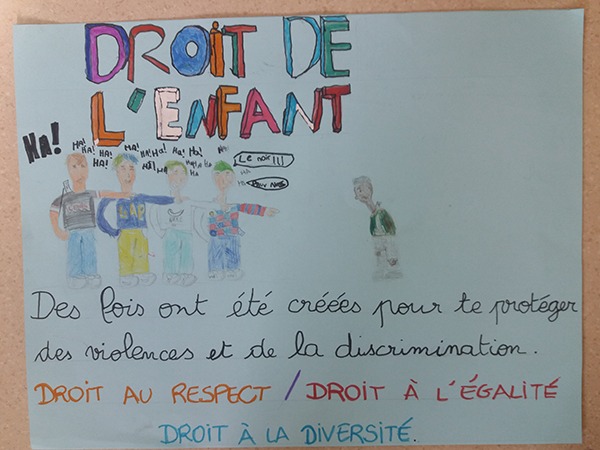 DROIT DE
L'ENFANT
HA!
HA! HA! HA! HA!
HA! HA! HA! HA! HA!
Le noir!!!
Des lois ont été créées pour te protéger
des violences et de la discrimination.
DROIT AU RESPECT / DROIT À L'ÉGALITÉ
DROIT À LA DIVERSITÉ.